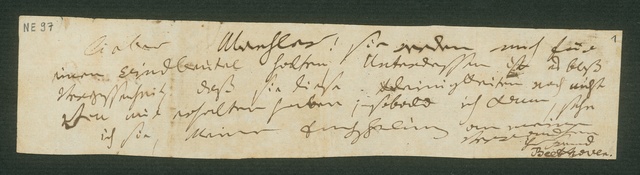 NE 97
1
lieber Maehler! sie werden mich für
einen halten, Unterdessen ist es bloß
Vergessenheit daß sie diese Kleinigkeiten noch nicht
Von mir erhalten haben, sobald ich kann, sehe
ich sie, Meine Empfehlung an meinen
freund
Beethoven.